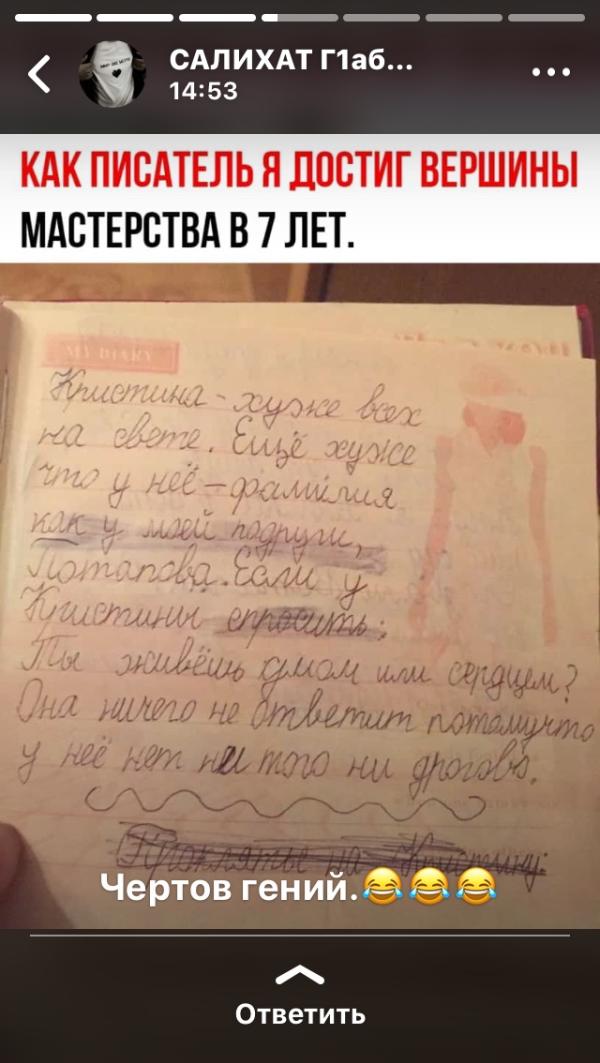 САЛИХАТ Г1аб...
14:53
КАК ПИСАТЕЛЬ Я ДОСТИГ ВЕРШИНЫ
МАСТЕРСТВА В 7 ЛЕТ.
MY DIARY
Кристина - хуже всех
на свете. Ещё хуже
что у неё - фамилия
как у моей подруги,
Потапова. Если у
Кристины спросить:
Ты живёшь умом или сердцем?
Она ничего не ответит потомучто
у неё нет ни того ни дрогово.
Проклятье на Кристину:
Чертов гений.😂😂😂
Ответить